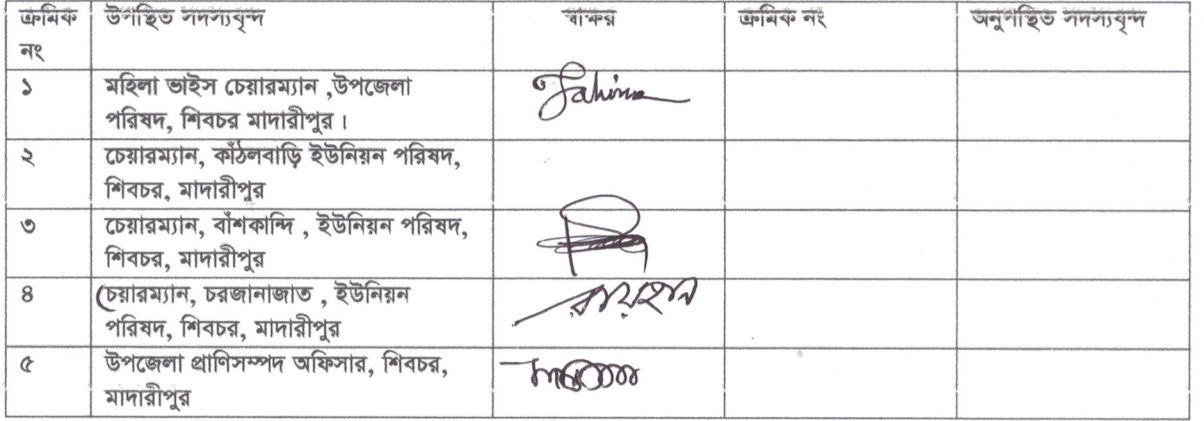 ক্রমিক নং উপস্থিত সদস্যবৃন্দ স্বাক্ষর ক্রমিক নং অনুপস্থিত সদস্যবৃন্দ
১ মহিলা ভাইস চেয়ারম্যান ,উপজেলা
পরিষদ, শিবচর মাদারীপুর।
২ চেয়ারম্যান, কাঁঠলবাড়ি ইউনিয়ন পরিষদ,
শিবচর, মাদারীপুর
৩ চেয়ারম্যান, বাঁশকান্দি , ইউনিয়ন পরিষদ,
শিবচর, মাদারীপুর
৪ চেয়ারম্যান, চরজানাজাত , ইউনিয়ন
পরিষদ, শিবচর, মাদারীপুর
রায়হান
৫ উপজেলা প্রাণিসম্পদ অফিসার, শিবচর,
মাদারীপুর